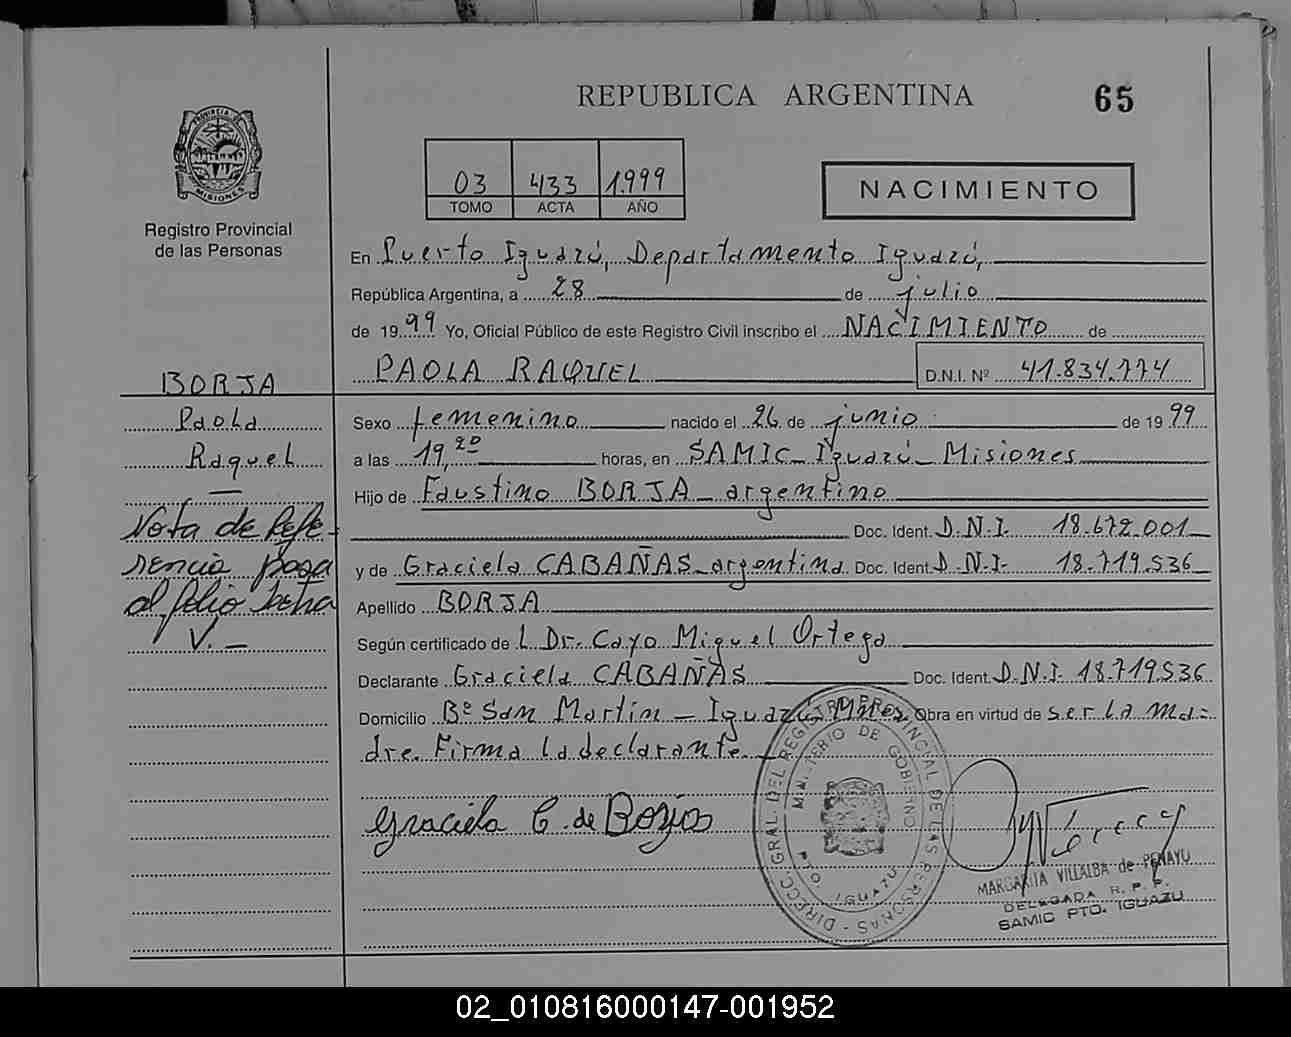 REPUBLICA ARGENTINA
65
PROVINCIA DE MISIONES
Registro Provincial
de las Personas
03 433 1.999
TOMO ACTA AÑO
NACIMIENTO
En Puerto Iguazú, Departamento Iguazú,
República Argentina, a 28 de julio
de 1999 Yo, Oficial Público de este Registro Civil inscribo el NACIMIENTO de
PAOLA RAQUEL D.N.I. Nº 41.834.774
BORJA
Paola
Raquel
Nota de Refe-
rencia pasa
al folio
V.-
Sexo femenino nacido el 26 de junio de 1999
a las 19,20 horas, en SAMIC - Iguazú - Misiones
Hijo de Faustino BORJA - argentino
Doc. Ident. D.N.I. 18.672.001
y de Graciela CABAÑAS - argentina Doc. Ident. D.N.I. 18.719.536
Apellido BORJA
Según certificado de L Dr. Cayo Miguel Ortega
Declarante Graciela CABAÑAS Doc. Ident. D.N.I. 18.719.536
Domicilio Bº San Martín - Iguazú Mnes. Obra en virtud de ser la ma-
dre. Firma la declarante.
Graciela C. de Borja
DIRECC. GRAL. DEL REGISTRO PROVINCIAL DE LAS PERSONAS
MINISTERIO DE GOBIERNO
PTO. IGUAZU
MARGARITA VILLALBA de PENAYO
DELEGADA R. P. P.
SAMIC PTO. IGUAZU
02_010816000147-001952